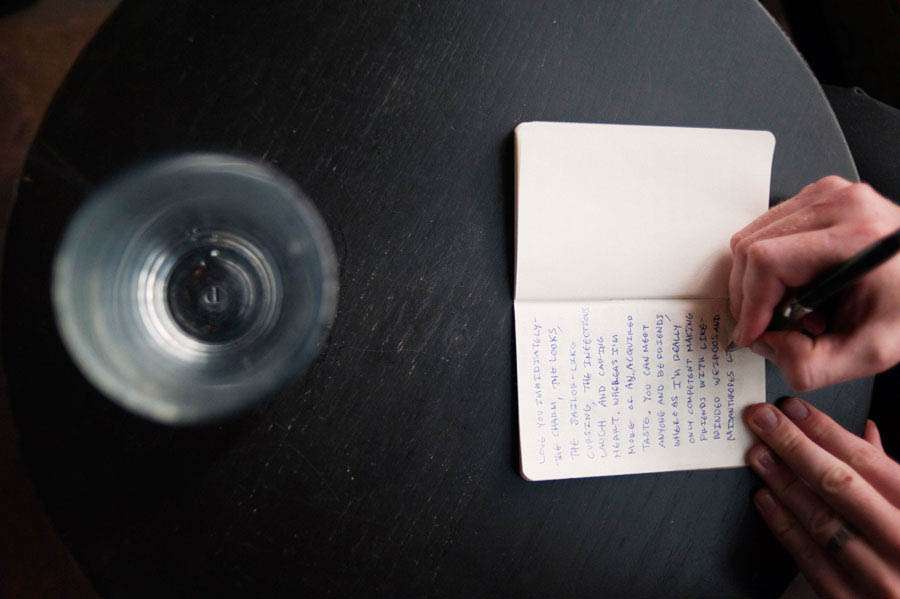 LOVE YOU IMMIDIATELY-
THE CHARM, THE LOOKS,
THE SAILOR-LIKE
CURSING, THE INFECTIOUS
LAUGH AND CARING
HEART. WHEREAS I'M
MORE OF AN ACQUIRED
TASTE. YOU CAN MEET
ANYONE AND BE FRIENDS
WHEREAS I'M REALLY
ONLY COMPETENT MAKING
FRIENDS WITH LIKE-
MINDED WEIRDOS AND
MISANTHROPES